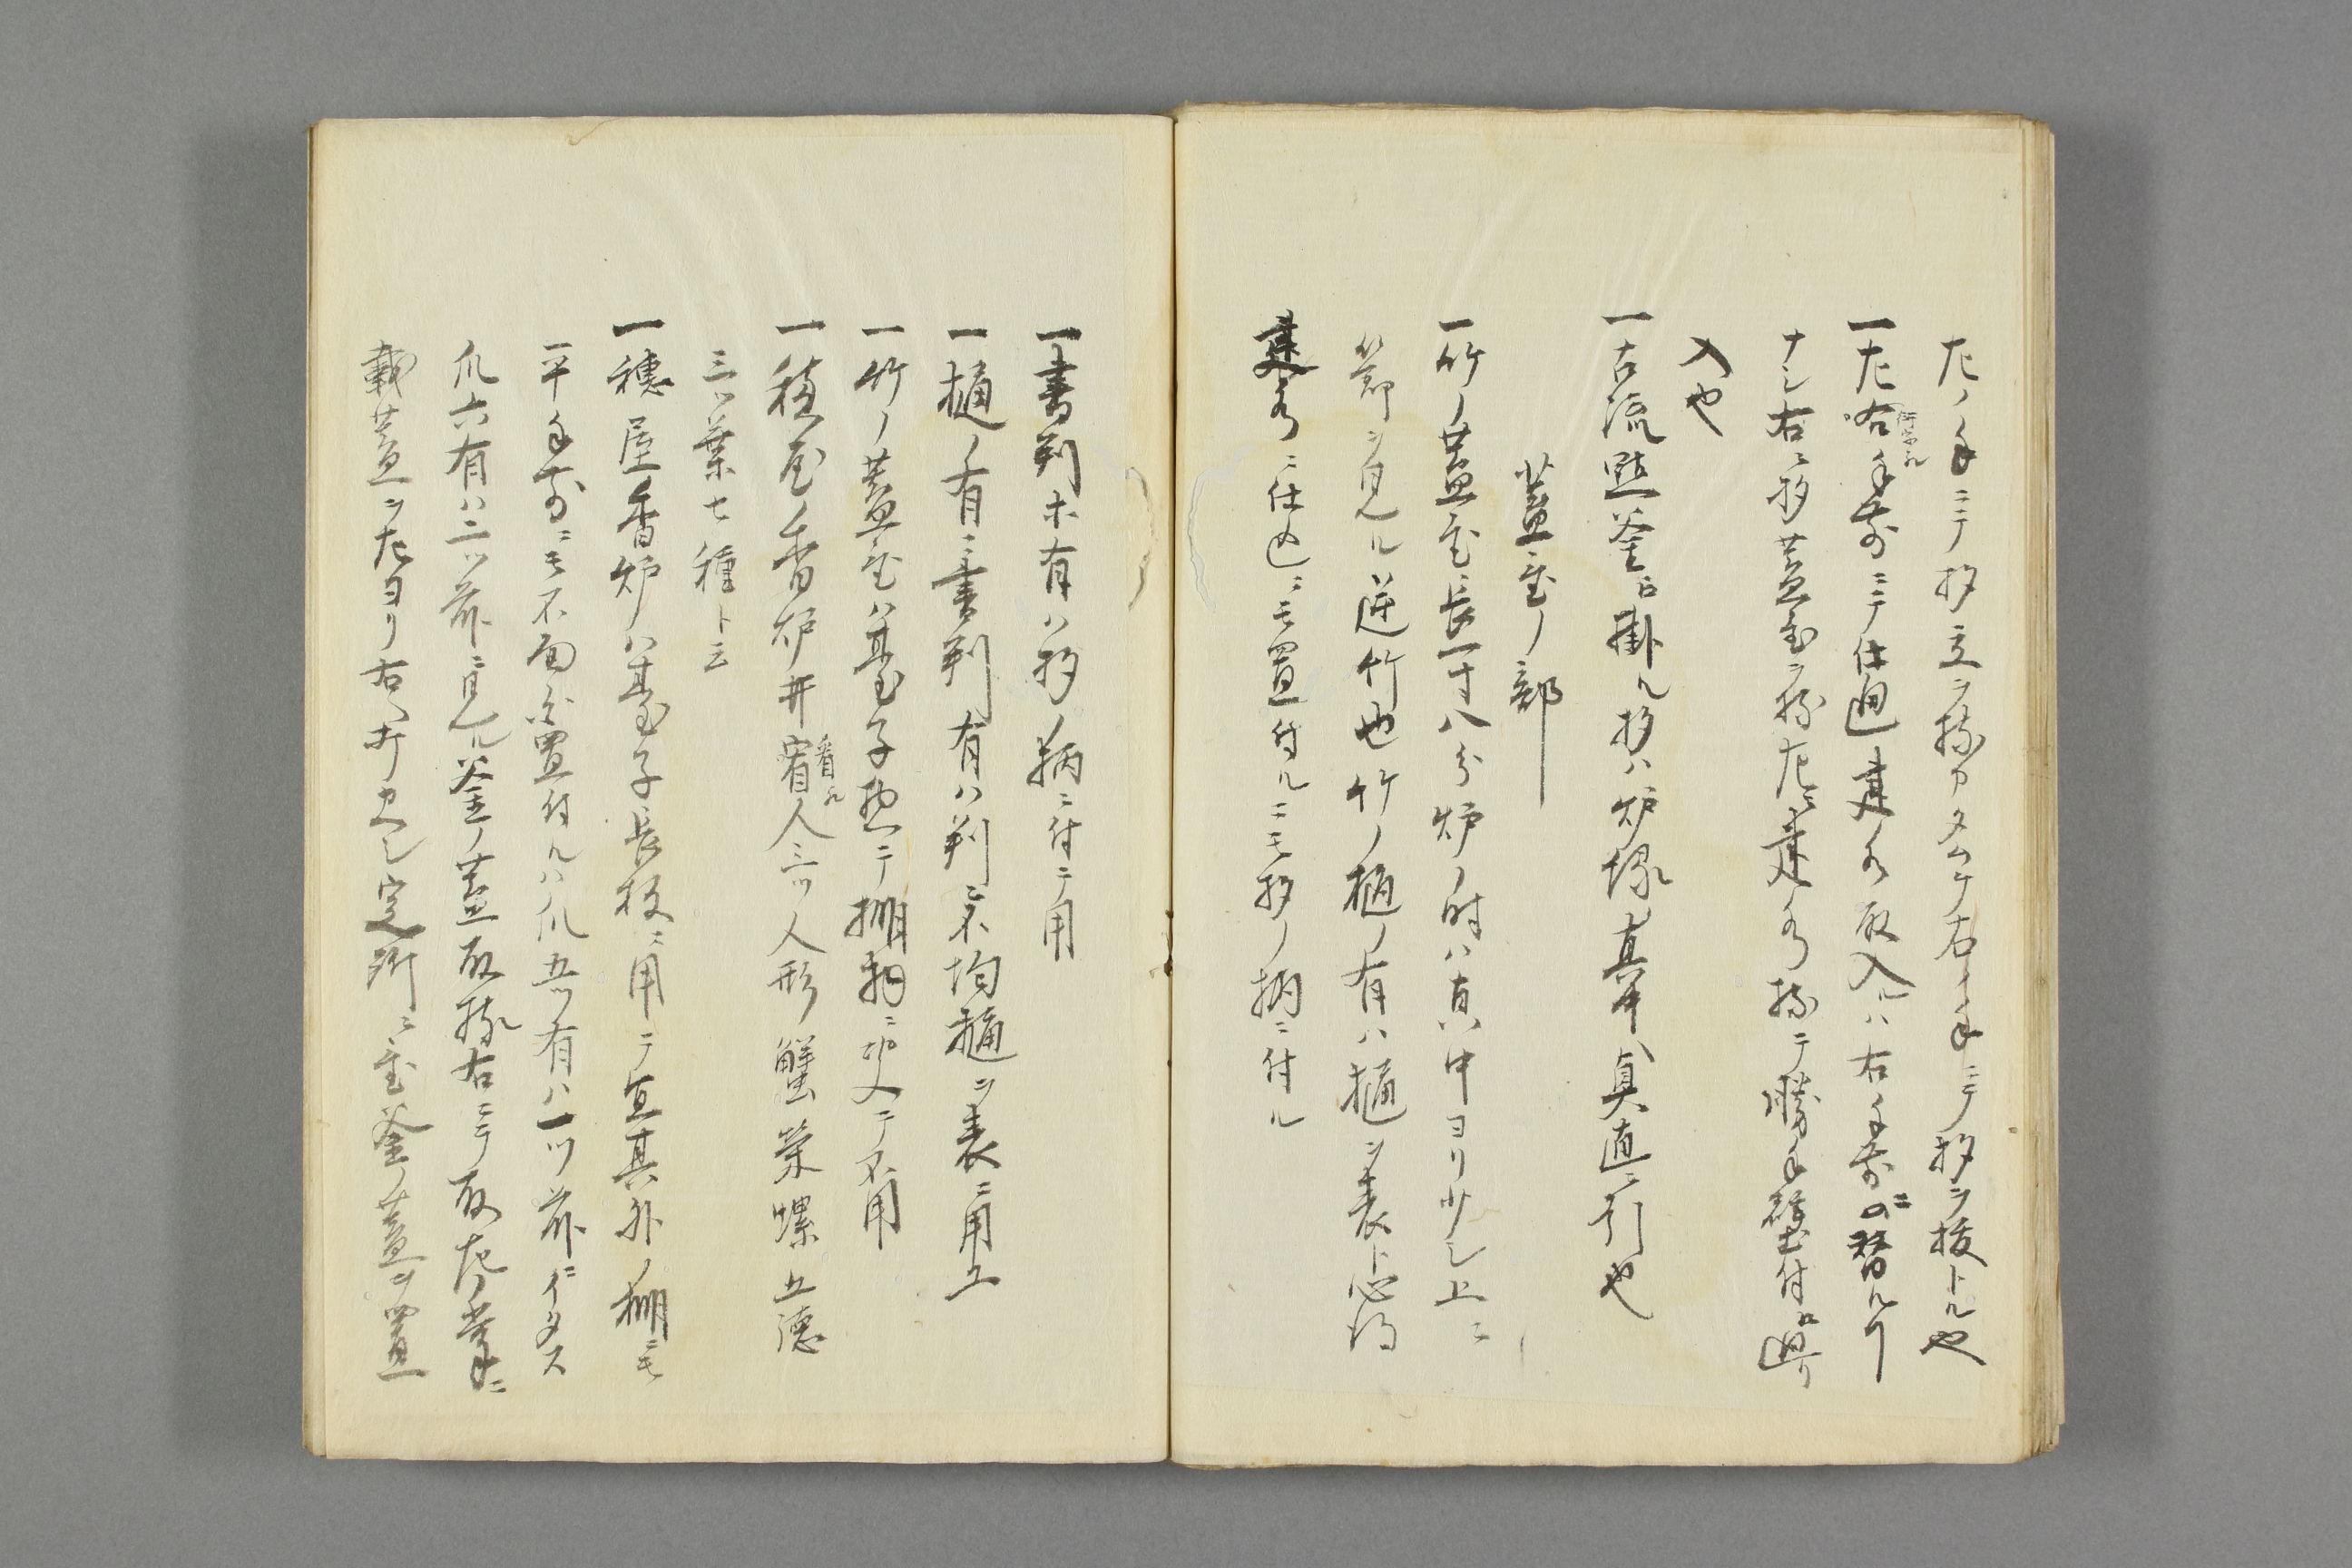 左ノ手ニテ杓立ヲ掾カタムケ右ノ手ニテ杓ヲ抜トル也
一左手前ニテ仕廻建水取入ハ右手前ニ替ルコ
ナシ右ニ杓蓋置ヲ持左ニ建水持テ勝手壁付ニ廻リ
入也
一古流點釜ニ掛ル杓ハ炉縁真中ヘ眞直ニ引也
蓋置ノ部
一竹ノ蓋置長一寸八分炉ノ時ハ真中ヨリ少シ上ニ
節ヲ見ル逆竹也竹ノ樋ノ有ハ樋ヲ表ト心得
建水ニ仕込ニモ置付ルニモ杓ノ柄ニ付ル
一書判ホ有ハ杓ノ柄ニ付テ用
一樋ノ有ニ書判有ハ判ニ不均樋ヲ表ニ用ユ
一竹ノ蓋置ハ臺子惣テ棚類ニ決テ不用
一穂屋ノ香炉井宿人三ツ人形蟹栄螺五德
三ツ葉七種ト云
一穂屋香炉ハ臺子長板ニ用テ宜其外ノ棚ニモ
平手前ニモ不面白置付ルハ爪五ツ有ハ一ツ前ニイタス
爪六有ハ二ツ前ニ見ル釜ノ蓋取様右ニテ取左ノ掌ニ
載蓋ヲ左ヨリ右ヘ打カヘシ定所ニ置釜ノ蓋ヲ置